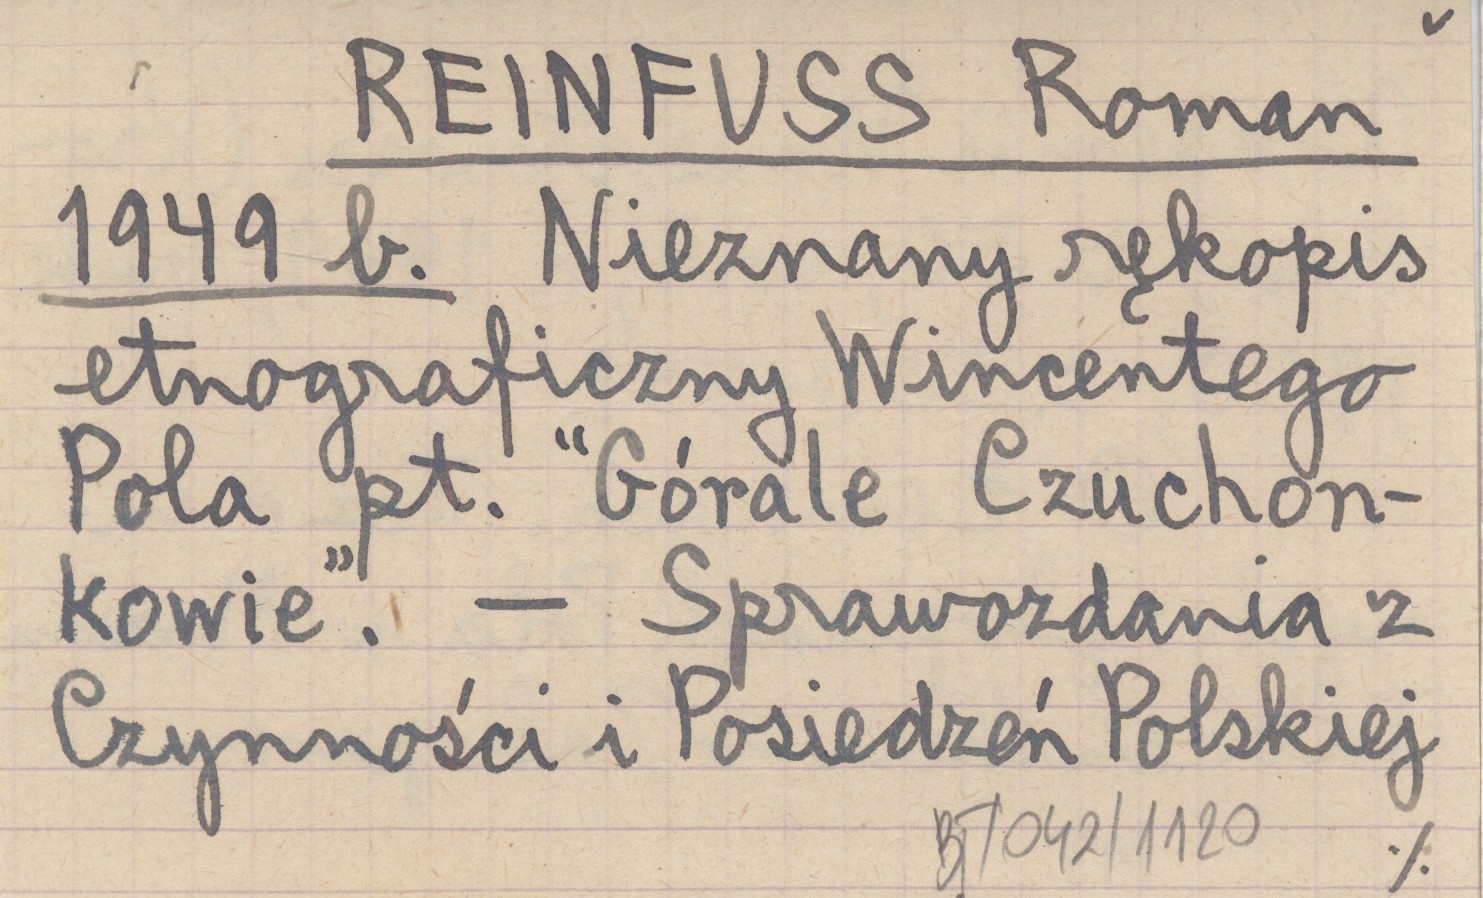 REINFUSS Roman
1949 b. Nieznany rękopis
etnograficzny Wincentego
Pola pt. “Górale Czuchon-
kowie”. — Sprawozdania z
Czynności i Posiedzeń Polskiej
BJ/042/1120
./.